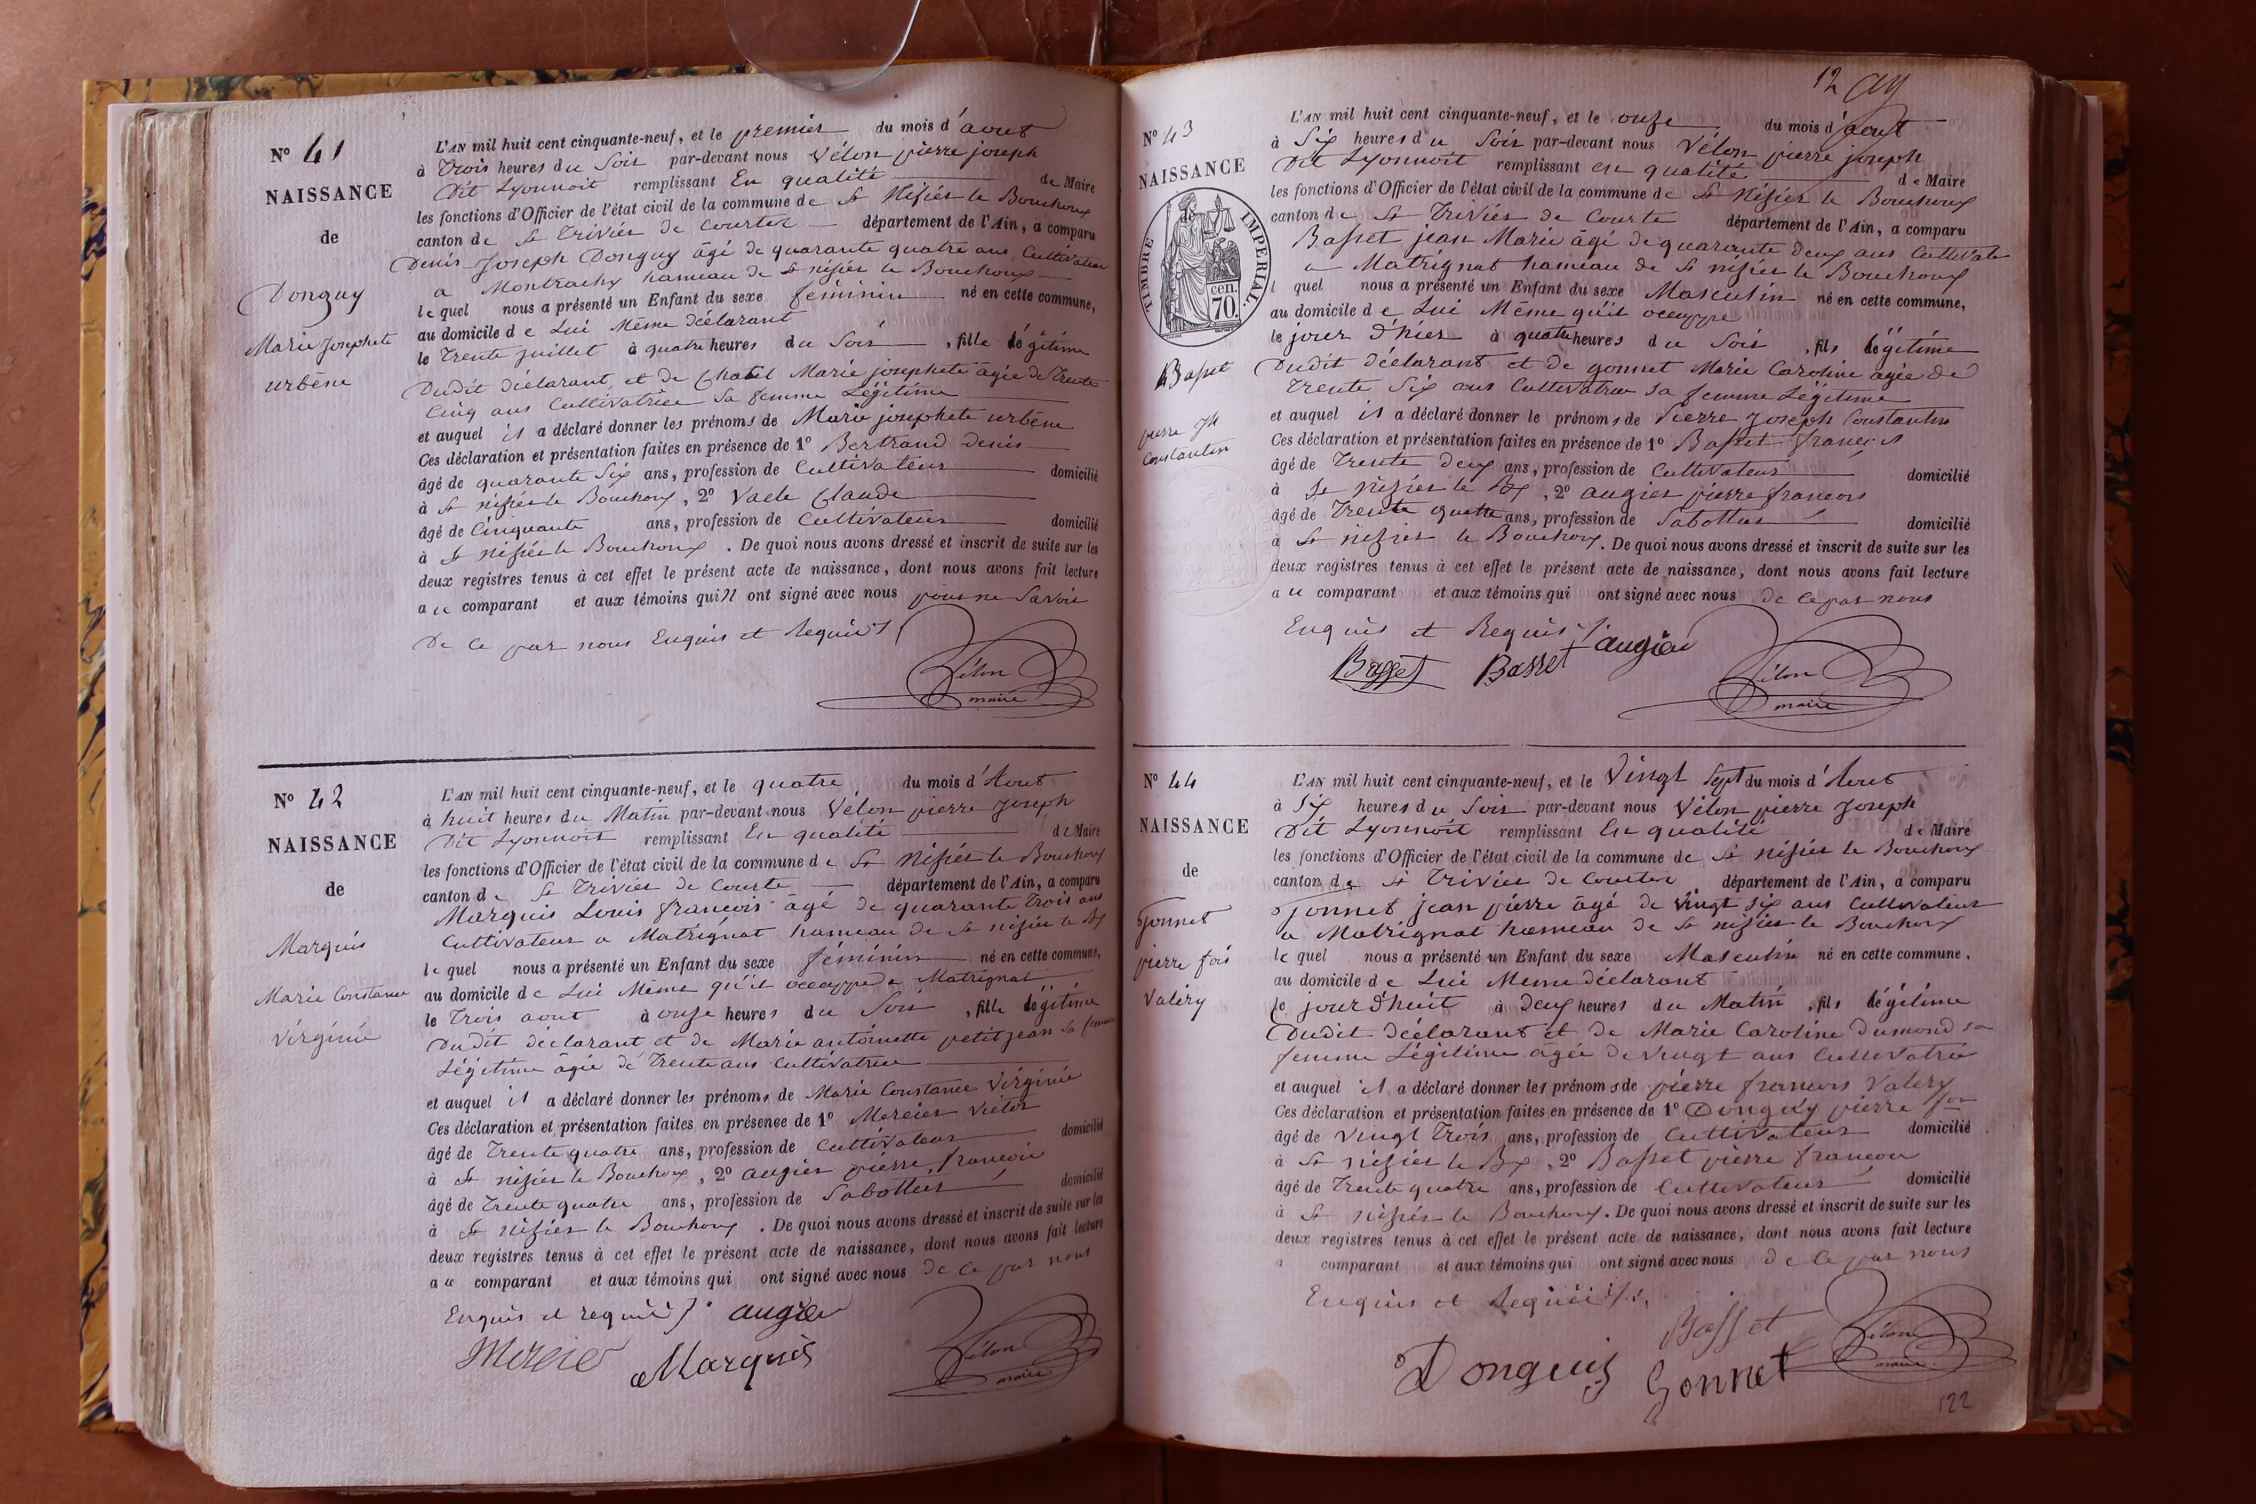 N° 41
NAISSANCE
de
Donguy
Marie Josephete
urbène
L'AN mil huit cent cinquante-neuf, et le premier du mois d'aout
à Trois heures du Soir par-devant nous Vélon pierre joseph
Dit Lyonnoit remplissant En qualité de Maire
les fonctions d'Officier de l'état civil de la commune de St Nifiér le Bouchoux
canton de St Triviér de Courtes département de l'Ain, a comparu
Denis Joseph Donguy âgé de quarante quatre ans Cultivateur
a Montrachy hameau de St nifiér le Bouchoux
lequel nous a présenté un Enfant du sexe féminin né en cette commune,
au domicile de Lui Même déclarant
le Trente juillet à quatre heures du Soir , fille légitime
Dudit déclarant et de Chatel Marie josephete âgée de Trente
Cinq ans Cultivatrice Sa femme Légitime
et auquel il a déclaré donner les prénoms de Marie josephete urbène
Ces déclaration et présentation faites en présence de 1° Bertrand denis
âgé de quarante Six ans, profession de Cultivateur domicilié
à St nifiér le Bouchoux, 2° Vacle Claude
âgé de Cinquante ans, profession de Cultivateur domicilié
à St nifiér le Bouchoux. De quoi nous avons dressé et inscrit de suite sur les
deux registres tenus à cet effet le présent acte de naissance, dont nous avons fait lecture
au comparant et aux témoins qui n ont signé avec nous pour ne Savoir
De Ce par nous Enquis et Requis
Vélon
maire
N° 42
NAISSANCE
de
Marquis
Marie Constance
Virginie
L'AN mil huit cent cinquante-neuf, et le quatre du mois d'Aout
à huit heures du Matin par-devant nous Vélon pierre Joseph
Dit Lyonnoit remplissant En qualité de Maire
les fonctions d'Officier de l'état civil de la commune de St Nifiér le Bouchoux
canton de St Triviér de Courte département de l'Ain, a comparu
Marquis Louis francois âgé de quarante Trois ans
Cultivateur a Matrignat hameau de St nifiér le Bx
lequel nous a présenté un Enfant du sexe féminin né en cette commune,
au domicile de Lui Même qu'il occuppe a Matrignat
le Trois aout à onze heures du Soir , fille légitime
Dudit déclarant et de Marie antoinette petitjean sa femme
Légitime âgée de Trente ans Cultivatrice
et auquel il a déclaré donner les prénoms de Marie Constance Virginie
Ces déclaration et présentation faites en présence de 1° Mercier Victor
âgé de Trente quatre ans, profession de Cultivateur domicilié
à St nifiér le Bouchoux, 2° augier pierre francois
âgé de Trente quatre ans, profession de Sabottier domicilié
à St nifiér le Bouchoux. De quoi nous avons dressé et inscrit de suite sur les
deux registres tenus à cet effet le présent acte de naissance, dont nous avons fait lecture
au comparant et aux témoins qui ont signé avec nous de Ce par nous
Enquis et requis augier
Mercier Marquis
Vélon
maire
12 ay
N° 43
NAISSANCE
TIMBRE IMPERIAL.
cen.
70.
Basset
pierre Jh
Constantin
L'AN mil huit cent cinquante-neuf, et le onze du mois d'aout
à Six heures du Soir par-devant nous Vélon pierre joseph
Dit Lyonnoit remplissant en qualité de Maire
les fonctions d'Officier de l'état civil de la commune de St Nifiér le Bouchoux
canton de St Triviér de Courte département de l'Ain, a comparu
Basset jean Marie âgé de quarante deux ans Cultivate
a Matrignat hameau de St nifiér le Bouchoux
l quel nous a présenté un Enfant du sexe Masculin né en cette commune,
au domicile de Lui Même qu'il occuppe
le jour d'hier à quatre heures du Soir , fils légitime
Dudit déclarant et de gonnet Marie Caroline âgée de
Trente Six ans Cultivatrice sa femme Légitime
et auquel il a déclaré donner le prénoms de Pierre Joseph Constantin
Ces déclaration et présentation faites en présence de 1° Basset francois
âgé de Trente deux ans, profession de Cultivateur domicilié
à St nifiér le Bx, 2° augier pierre francois
âgé de Trente quatre ans, profession de Sabottier domicilié
à St nifiér le Bouchoux. De quoi nous avons dressé et inscrit de suite sur les
deux registres tenus à cet effet le présent acte de naissance, dont nous avons fait lecture
au comparant et aux témoins qui ont signé avec nous de Ce par nous
Enquis et Requis augier
Basset Basset
Vélon
maire
N° 44
NAISSANCE
de
Gonnet
pierre fois
Valéry
L'AN mil huit cent cinquante-neuf, et le Vingt Sept du mois d'Aout
à Six heures du Soir par-devant nous Vélon pierre Joseph
Dit Lyonnoit remplissant En qualité de Maire
les fonctions d'Officier de l'état civil de la commune de St nifiér le Bouchoux
canton de St Triviér de Courtes département de l'Ain, a comparu
Gonnet jean pierre âgé de vingt six ans Cultivateur
a Matrignat hameau de St nifiér le Bouchoux
lequel nous a présenté un Enfant du sexe Masculin né en cette commune,
au domicile de Lui Meme déclarant
le jour d'huit à Deux heures du Matin , fils légitime
Dudit déclarant et de Marie Caroline Dumond sa
femme Légitime âgée de vingt ans Cultivatrice
et auquel il a déclaré donner les prénoms de pierre francois Valéry
Ces déclaration et présentation faites en présence de 1° Donguy pierre
âgé de vingt Trois ans, profession de Cultivateur domicilié
à St nifiér le Bx, 2° Basset pierre francois
âgé de Trente quatre ans, profession de Cultivateur domicilié
à St nifiér le Bouchoux. De quoi nous avons dressé et inscrit de suite sur les
deux registres tenus à cet effet le présent acte de naissance, dont nous avons fait lecture
a comparant et aux témoins qui ont signé avec nous de Ce par nous
Enquis et Requis
Basset
Donguy Gonnet
Vélon
maire
122